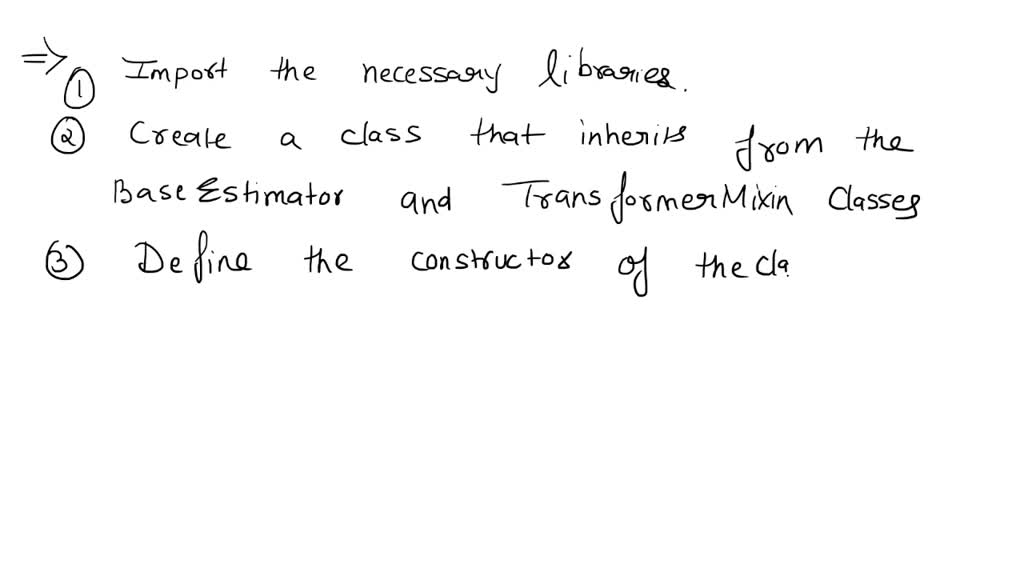 ⇒ ① Import the necessary libraries.
② Create a class that inherits from the
BaseEstimator and TransformerMixin Classes
③ Define the constructor of the cla